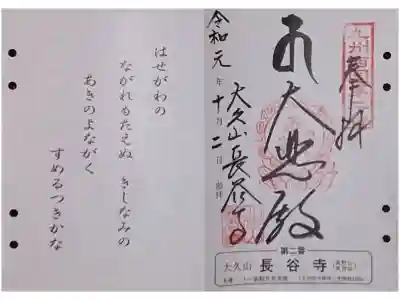 はせがわの
ながれもたえぬ きしなみの
あきのよながく
すめるつきかな
九州百
奉拝
大悲殿
大久山長谷寺
令和元年十月二日
第二番
大久山 長谷寺